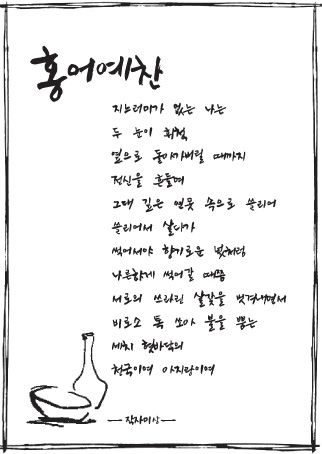 홍어예찬
지느러미가 없는 나는
두 눈이 휘청
옆으로 돌아가버릴 때까지
전신을 흔들며
그대 깊은 연못 속으로 쓸리어
쓸리어서 살다가
썩어서야 향기로운 넋처럼
나른하게 썩어갈 때쯤
서로의 쓰라린 살갗을 벗겨내면서
비로소 톡 쏘아 불을 뿜는
세치 혓바닥의
천국이여 아지랑이여
— 작자미상 —